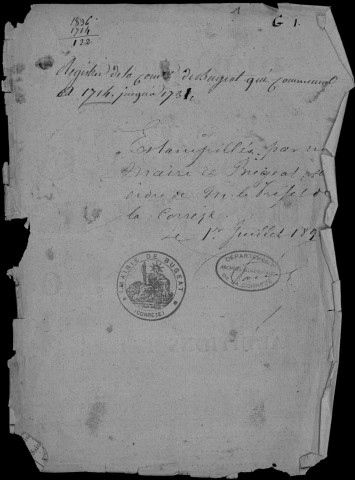 1
G 1.
1836
1714
122
Registre de la cour de Bugeat qui commence
et 1714, jusqu'a 1731,
Estampillé par
Maire de Bugeat,
de M. le Préfet de
la Corrèze
le 1er Juillet 189
MAIRIE DE BUGEAT
(CORRÈZE)
DÉPARTEMENT
DE LA CORRÈZE